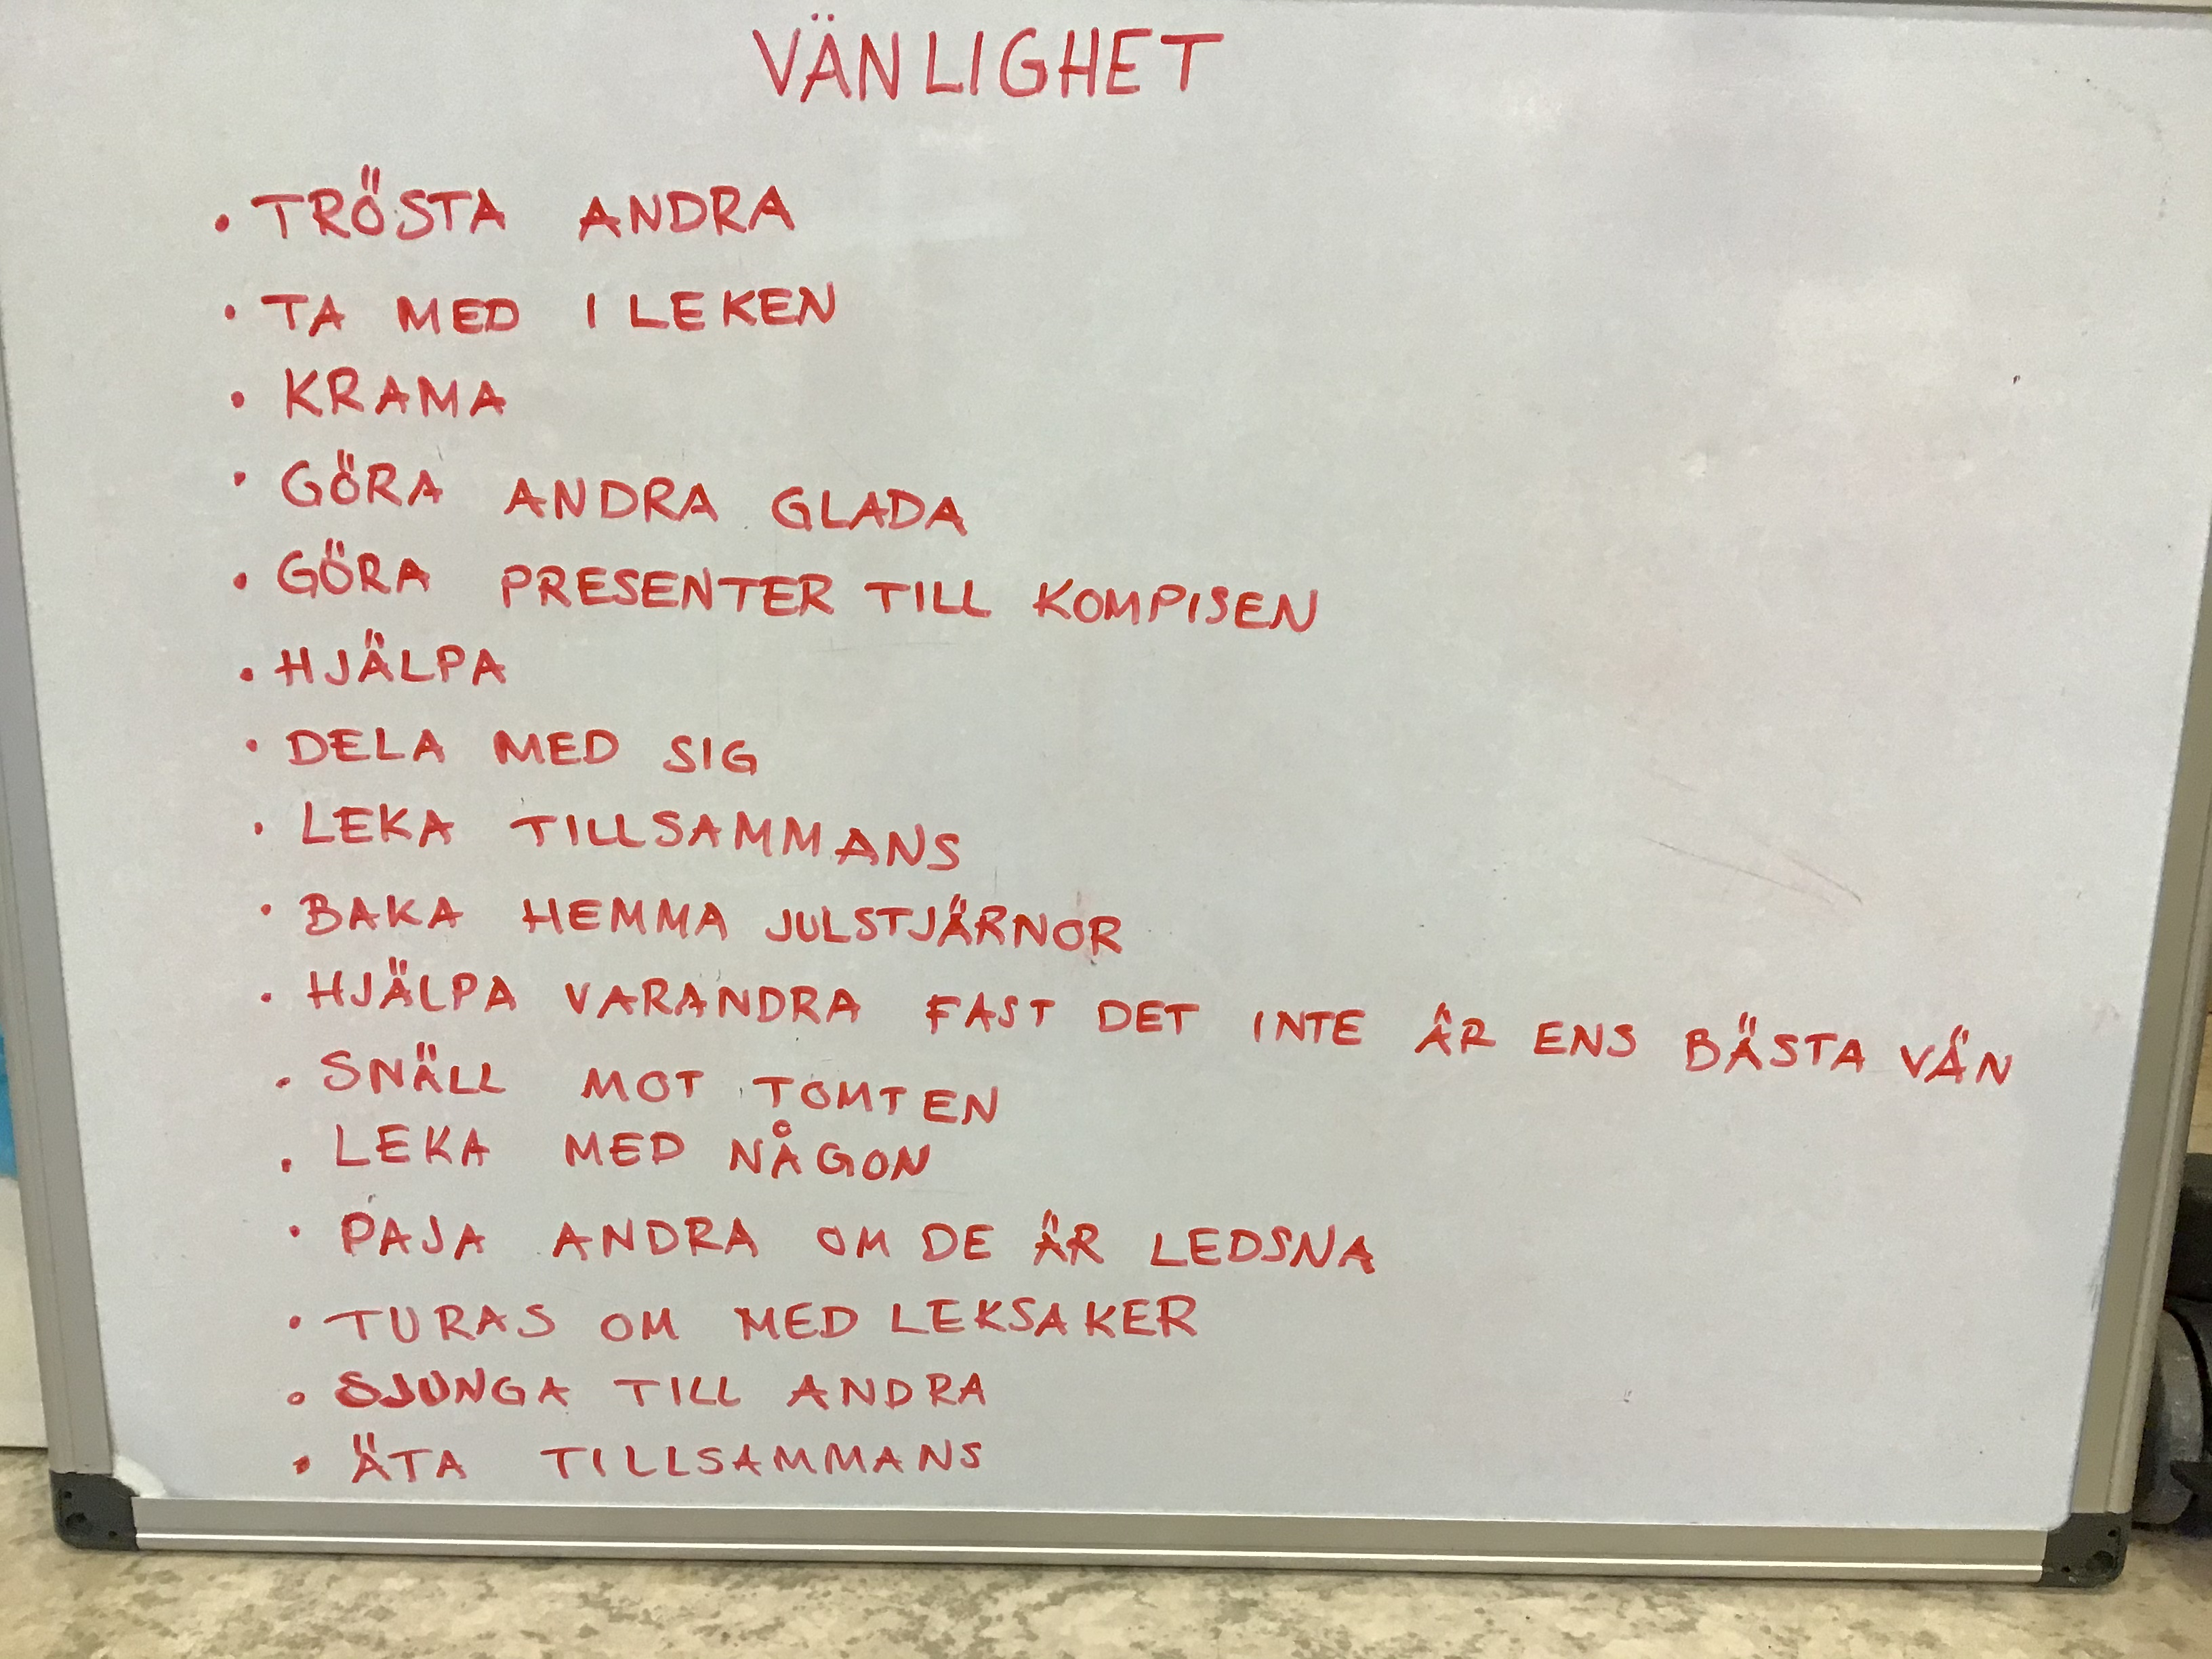 VÄNLIGHET
• TRÖSTA ANDRA
• TA MED I LEKEN
• KRAMA
• GÖRA ANDRA GLADA
• GÖRA PRESENTER TILL KOMPISEN
• HJÄLPA
• DELA MED SIG
• LEKA TILLSAMMANS
• BAKA HEMMA JULSTJÄRNOR
• HJÄLPA VARANDRA FAST DET INTE ÄR ENS BÄSTA VÄN
• SNÄLL MOT TOMTEN
• LEKA MED NÅGON
• PAJA ANDRA OM DE ÄR LEDSNA
• TURAS OM MED LEKSAKER
• SJUNGA TILL ANDRA
• ÄTA TILLSAMMANS